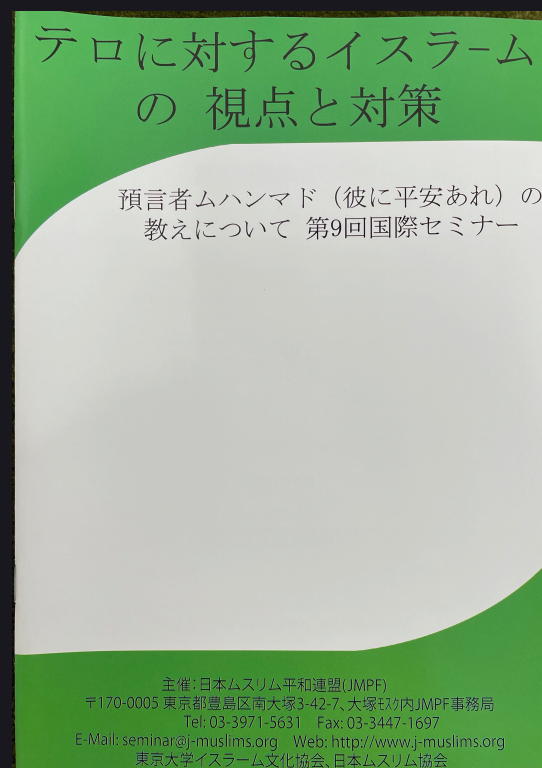 テロに対するイスラーム
の 視点と対策
預言者ムハンマド（彼に平安あれ）の
教えについて 第9回国際セミナー
主催：日本ムスリム平和連盟(JMPF)
〒170-0005 東京都豊島区南大塚3-42-7、大塚ﾓｽｸ内JMPF事務局
Tel: 03-3971-5631 Fax: 03-3447-1697
E-Mail: seminar@j-muslims.org Web: http://www.j-muslims.org
東京大学イスラーム文化協会、日本ムスリム協会